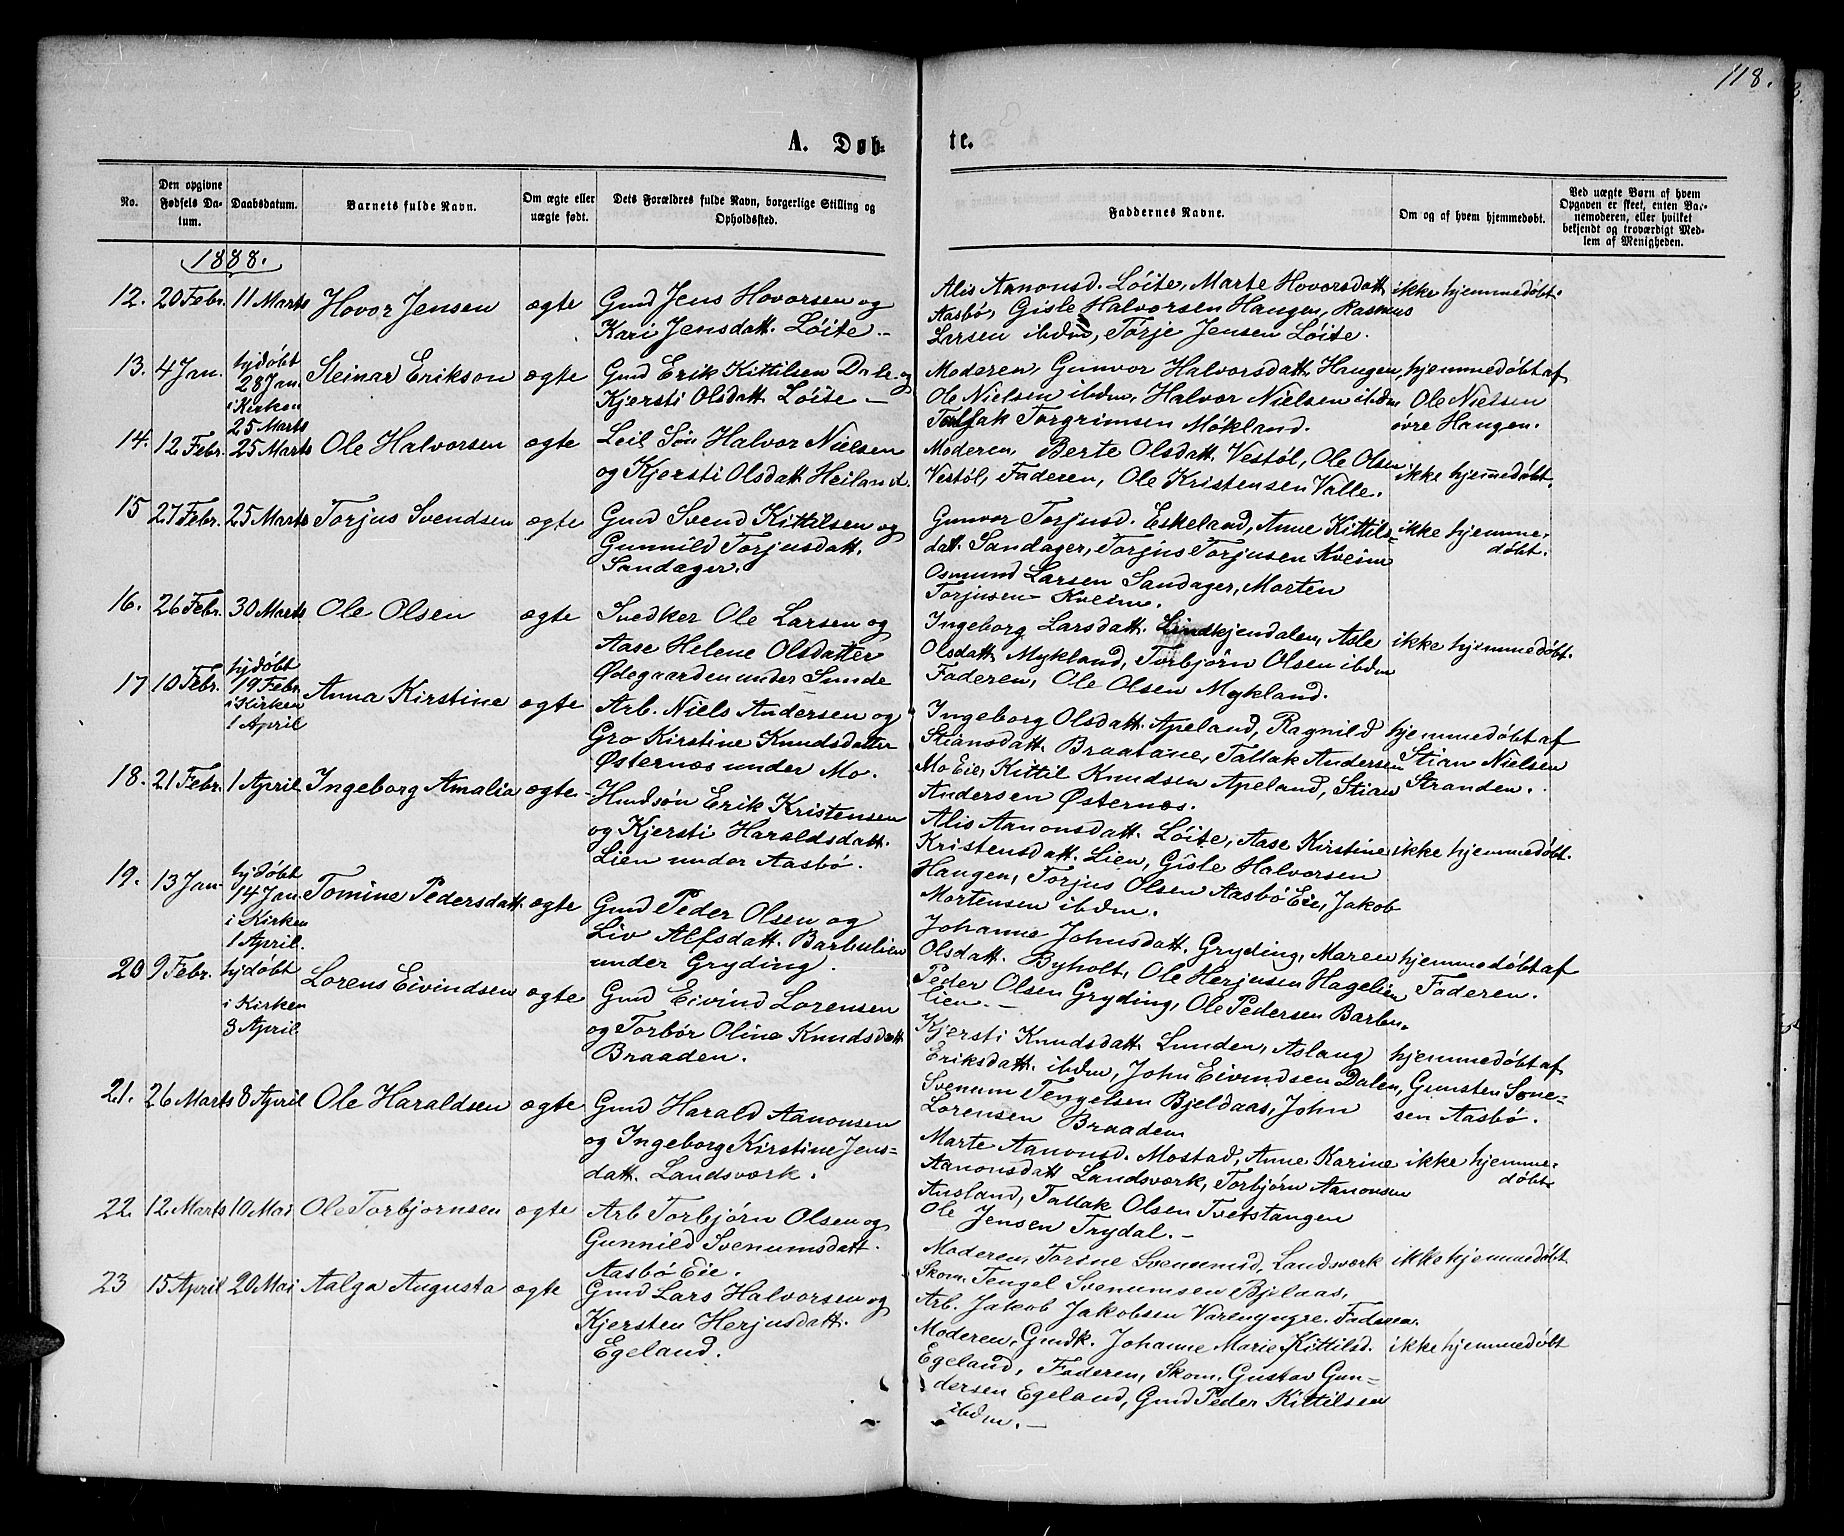 118.
A. Døb-
te.
No.
Den opgivne Fødsels Da-
tum.
Daabsdatum.
Barnets fulde Navn.
Om ægte eller
uægte født.
Dets Forældres fulde Navn, borgerlige Stilling og
Opholdssted.
Faddernes Navne.
Om og af hvem hjemmedøbt.
Ved uægte Børn af hvem
Opgaven er skeet, enten Bar-
nemoderen, eller hvilket
bekjendt og troværdigt Med-
lem af Menigheden.
1888.
12. 20 Febr. 11 Marts Hovor Jensen ægte
Gmd Jens Hovorsen og
Kari Jensdatt. Löite —
Alis Aanonsd. Löite, Marte Hovorsdatt
Aasbö, Gisle Halvorsen Haugen, Rasmus
Larsen ibdm, Torje Jensen Löite.
ikke hjemmedøbt.
13. 4 Jan. hjdøbt
28 Jan.
i Kirken
25 Marts
Steinar Erikson ægte
Gmd Erik Kittilsen Dale og
Kjersti Olsdatt. Löite —
Moderen, Gunvor Halvorsdatt. Haugen,
Ole Nielsen ibdm, Halvor Nielsen ibdm
Torgrimsen Mökland.
hjemmedøbt af
Ole Nielsen
övre Haugen.
14. 12 Febr. 25 Marts Ole Halvorsen ægte
Leil. Sön Halvor Nielsen
og Kjersti Olsdatt. Heiland.
Moderen, Berte Olsdatt. Vestöl, Ole Olsen
Vestöl, Faderen, Ole Kristensen Valle.
ikke hjemmedøbt.
15 27 Febr. 25 Marts Torjus Svendsen ægte
Gmd Svend Kittilsen og
Gunnild Torjusdatt.
Sandager.
Gunvor Torjusd. Eskeland, Anne Kittils-
datt. Sandager, Torjus Torjusen Kveim
Osmund Larsen Sandager, Morten
Torjusen Kveim.
ikke hjemme-
døbt.
16. 26 Febr. 30 Marts Ole Olsen ægte
Snedker Ole Larsen og
Aase Helene Olsdatter
Ødegaarden under Sunde
Ingeborg Larsdatt. Lindkjendalen, Asle
Olsdatt. Mykland, Torbjörn Olsen ibdm
Faderen, Ole Olsen Mykland.
ikke hjemmedøbt.
17 10 Febr. hjdøbt
19 Febr
i Kirken
1 April
Anna Kirstine ægte
Arb. Niels Andersen og
Gro Kirstine Knudsdatter
Østernæs under Mo.
Ingeborg Olsdatt. Apeland, Ragnild
Stiansdatt. Braatane, Tallak Andersen
Mo Eie, Kittil Knudsen Apeland, Stian
Andersen Østernæs.
hjemmedøbt af
Stian Nielsen
Stranden.
18. 21 Febr. 1 April Ingeborg Amalia ægte
Husdsön Erik Kristensen
og Kjersti Haraldsdatt.
Lien under Aasbö.
Alis Aanonsdatt. Löite, Aase Kirstine
Kristensdatt. Lien, Gisle Halvorsen
Haugen, Torjus Olsen Aasbö Eie, Jakob
Mortensen ibdm.
ikke hjemmedøbt.
19. 13 Jan hjdøbt
14 Jan.
i Kirken
1 April.
Tomine Pedersdatt. ægte
Gmd Peder Olsen og
Liv Alfsdatt. Barbulien
under Gryding.
Johanne Johnsdatt. Gryding, Maren
Olsdatt. Byholt, Ole Herjusen Hagelien
Peder Olsen Gryding, Ole Pedersen Barbu-
lien. —
hjemmedøbt af
Faderen.
20 9 Febr. hjdøbt
i Kirken
8 April
Lorens Eivindsen ægte
Gmd Eivind Lorensen
og Torbör Oline Knudsdatt.
Braaden.
Kjersti Knudsdatt. Lunden, Aslaug
Eriksdatt. ibdm, John Eivindsen Dalen,
Svenum Tengelsen Bjeldaas, John
Lorensen Braaden
hjemmedøbt af
Gunsten Søne-
sen Aasbö.
21. 26 Marts 8 April Ole Haraldsen ægte
Gmd Harald Aanonsen
og Ingeborg Kirstine Jens-
datt. Landsværk.
Marte Aanonsd. Mostad, Anne Karine
Aanonsdatt Landsværk, Torbjörn Aanonsen
Ausland, Tallak Olsen Tvetstangen
Ole Jensen Trydal. —
ikke hjemme-
døbt.
22. 12 Marts 10 Mai Ole Torbjornsen ægte
Arb Torbjörn Olsen og
Gunnild Svenumsdatt.
Aasbö Eie.
Moderen, Torine Svenumsd. Landsværk
Skom. Tengel Svenumsen Bjelaas,
Arb. Jakob Jakobsen Varenyngre. Faderen.
ikke hjemmedøbt
23 15 April 20 Mai Aalga Augusta ægte
Gmd Lars Halvorsen og
Kjersten Herjusdatt.
Egeland.
Moderen, Gmdk. Johanne Marie Kittilsd.
Egeland, Faderen, Skom. Gustav Gun-
dersen Egeland, Gmd Peder Kittilsen
ibdm. —
ikke hjemmedøbt